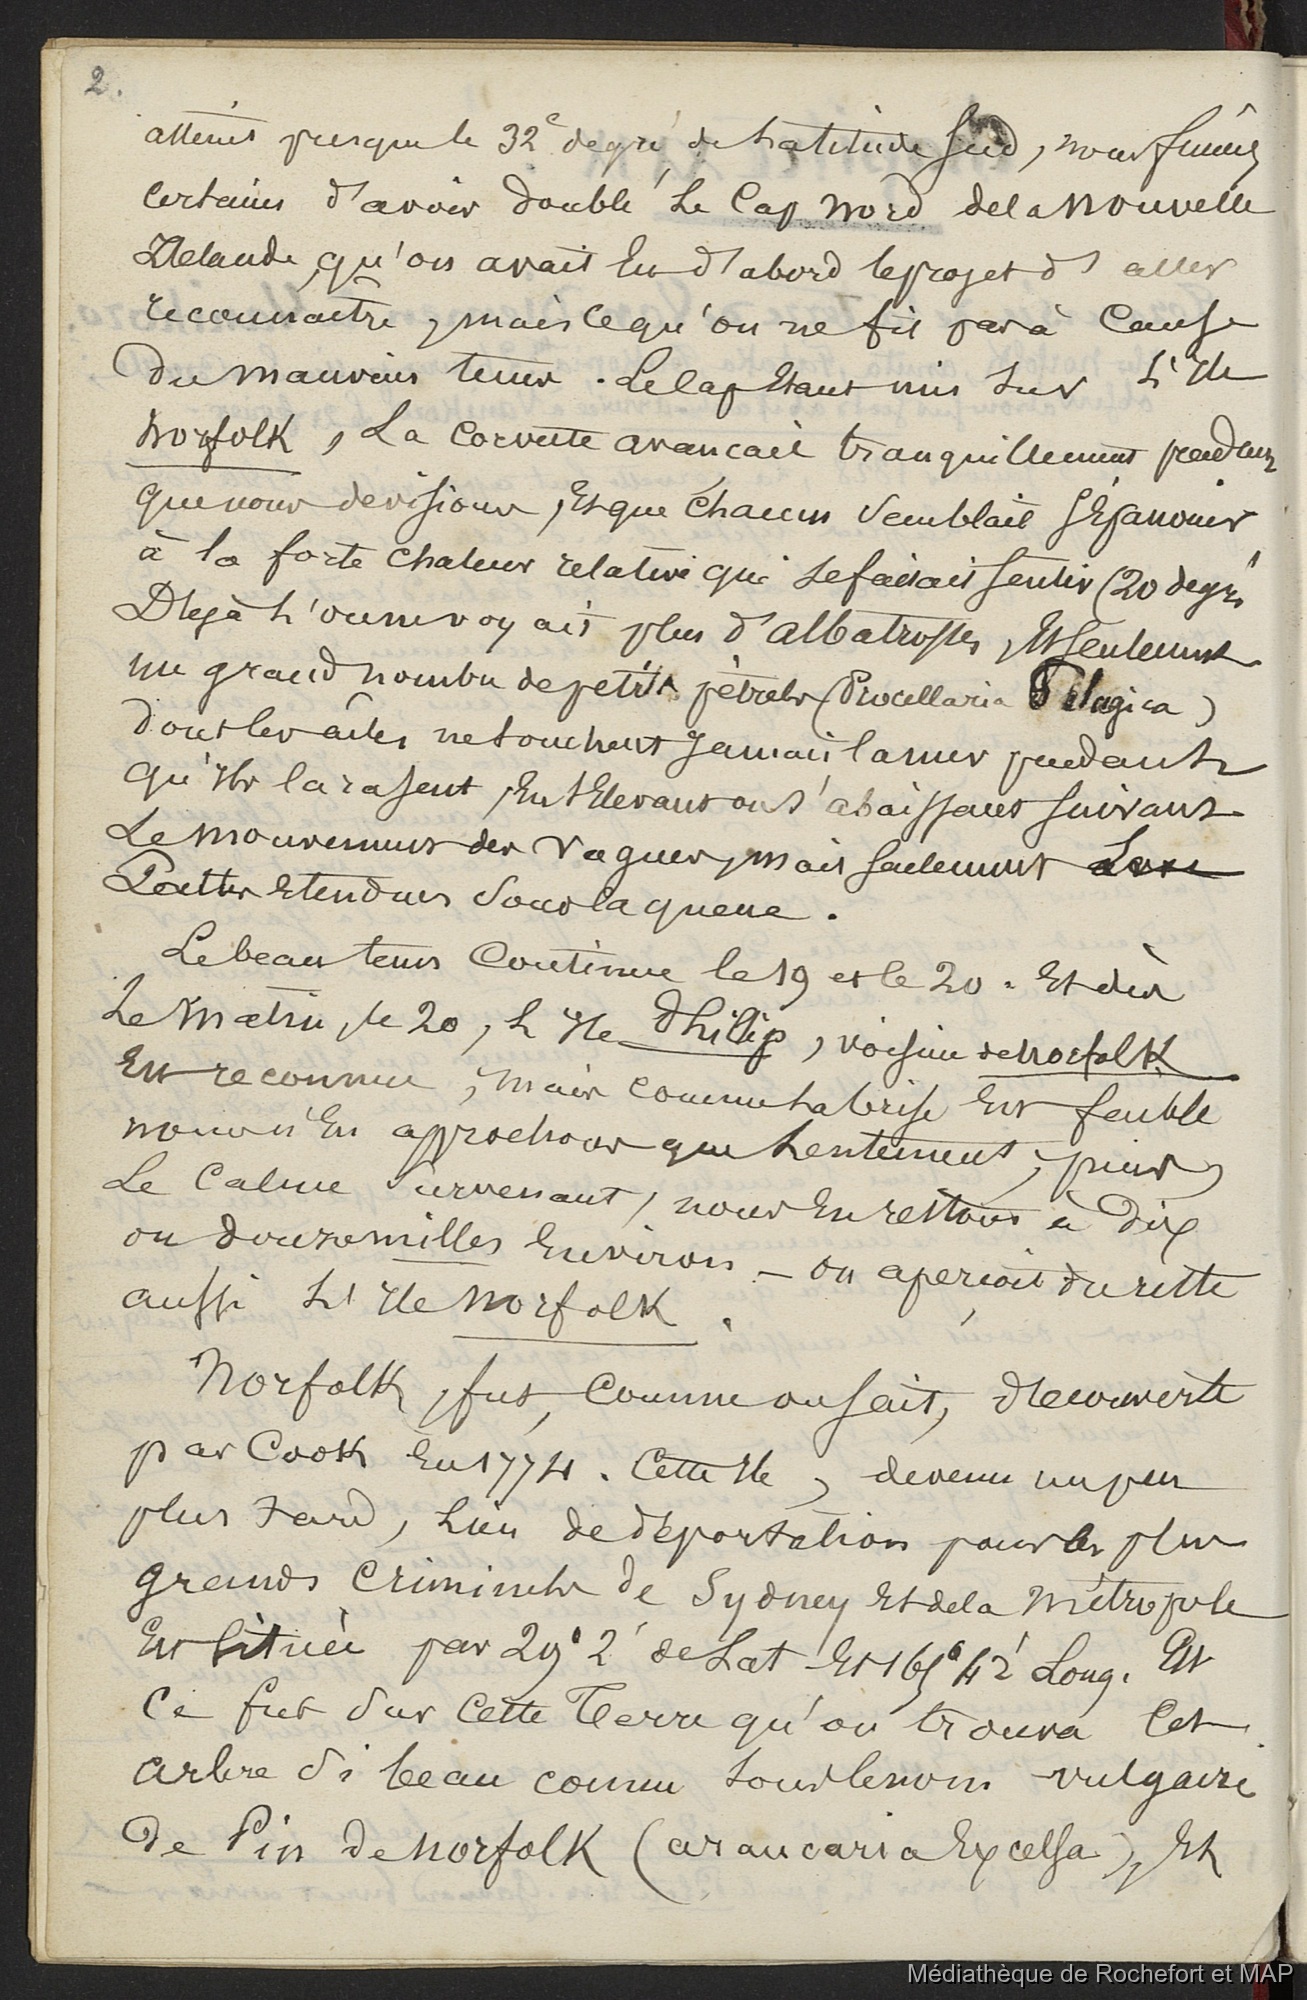 2.
atteint presque le 32e degré de Latitude Sud, nous fumes
certains d'avoir doublé Le Cap Nord de la Nouvelle
Zélande, qu'on avait Eu d'abord le projet d'aller
reconnaitre, mais ce qu'on ne fit pas à Cause
Du Mauvais tems. Le Cap Etant mis Sur L'Ile
Norfolk, La Corvette avancait tranquillement pendant
que nous devisions, Et que Chacun Semblait S'Epanouir
à la forte Chaleur relative qui Se faisait Sentir (20 degrés
Déjà L'on ne voyait plus d'Albatrosses, Et Seulement
un grand nombre de petits pétrels (Procellaria Pelagica)
dont les ailes ne touchent Jamais la mer pendant
qu'ils la rasent, En S'Elevant ou S'abaissant Suivant
Le Mouvement des Vagues, Mais Seulement
Pattes Etendues Sous la queue.
Le beau tems Continue le 19 et le 20. Et dès
Le Matin, le 20, L'Ile Philip, voisine de Norfolk
Est reconnue, Mais comme La brise Est faible
nous n'En approchons que Lentement, puis,
Le Calme Survenant, nous En restons à Dix
ou douze milles Environ — on apercoit du reste
aussi L'Ile Norfolk.
Norfolk, fut, Comme on Sait, découverte
par Cook En 1774. Cette Ile, devenue un peu
plus tard, Lieu de déportation pour les plus
grands Criminels de Sydney Et de la Métropole
Est Située par 29° 2' de Lat Et 165° 42' Long. Et
Ce fut Sur Cette Terre qu'on trouva Cet
arbre Si beau connu Sous le nom vulgaire
De Pin de Norfolk (araucaria Excelsa), Et
Médiathèque de Rochefort et MAP